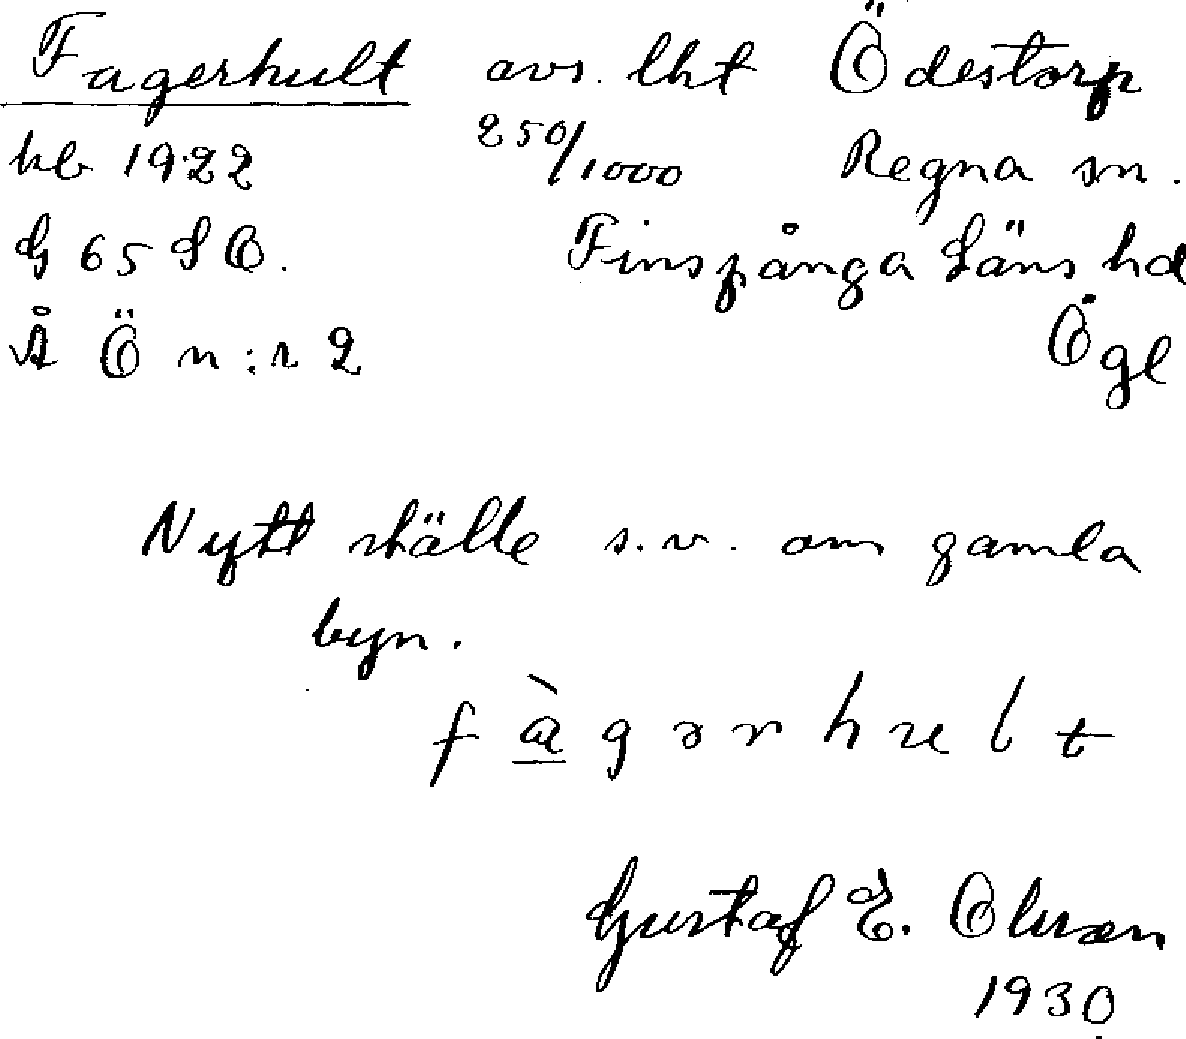 Fagerhult avs. lht Ödestorp
kb 1922 250/1000 Regna sn.
G 65 SO. Finspånga Läns hd
Å Ö n:r 2 Ögl
Nytt ställe s.v. om gamla
byn.
f à̲ g ə r h u l t
Gustaf E. Olsson
1930